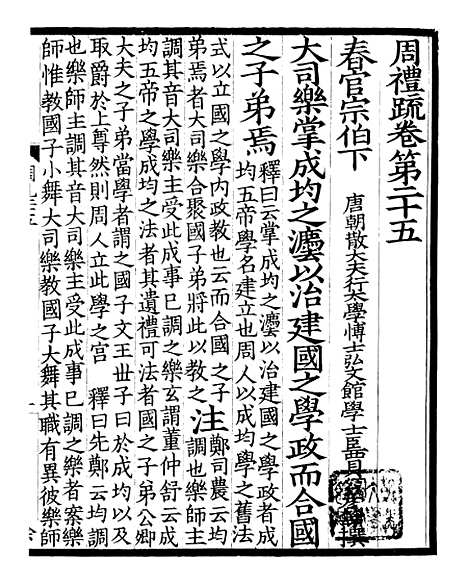 周禮疏卷第二十五
春官宗伯下 唐朝散大夫行太學博士弘文館學士臣賈撰
大司樂掌成均之灋以治建國之學政而合國
之子弟焉 釋曰云掌成均之灋以治建國之學政者成
均五帝學名建立也周人以成均學之舊法
式以立國之學內政教也云而合國之子
弟焉者大司樂合聚國子弟將此以教之
注 鄭司農云均
調也樂師主
調其音大司樂主受此成事已調之樂玄謂董仲舒云成
均五帝之學成均之法者其遺禮可法者國之子弟公卿
大夫之子弟當學者謂之國子文王世子曰於成均以及
取爵於上尊然則周人立此學之宮 釋曰先鄭云均調
也樂師主調其音大司樂主受此成事已調之樂者案樂
師惟教國子小舞大司樂教國子大舞其職有異彼樂師